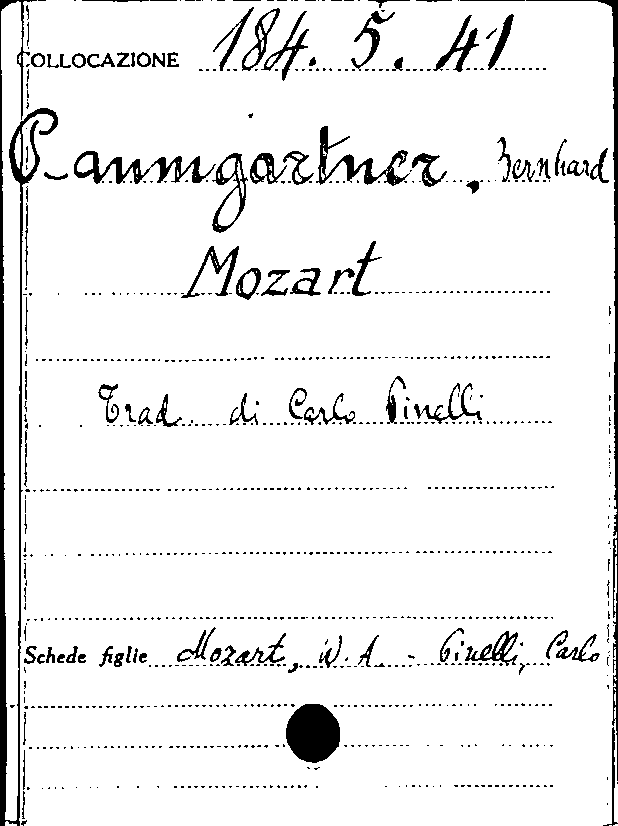 COLLOCAZIONE 184. 5. 41
Paumgartner, Bernhard
Mozart
Trad. di Carlo Pinelli
Schede figlie Mozart, W. A. - Pinelli, Carlo